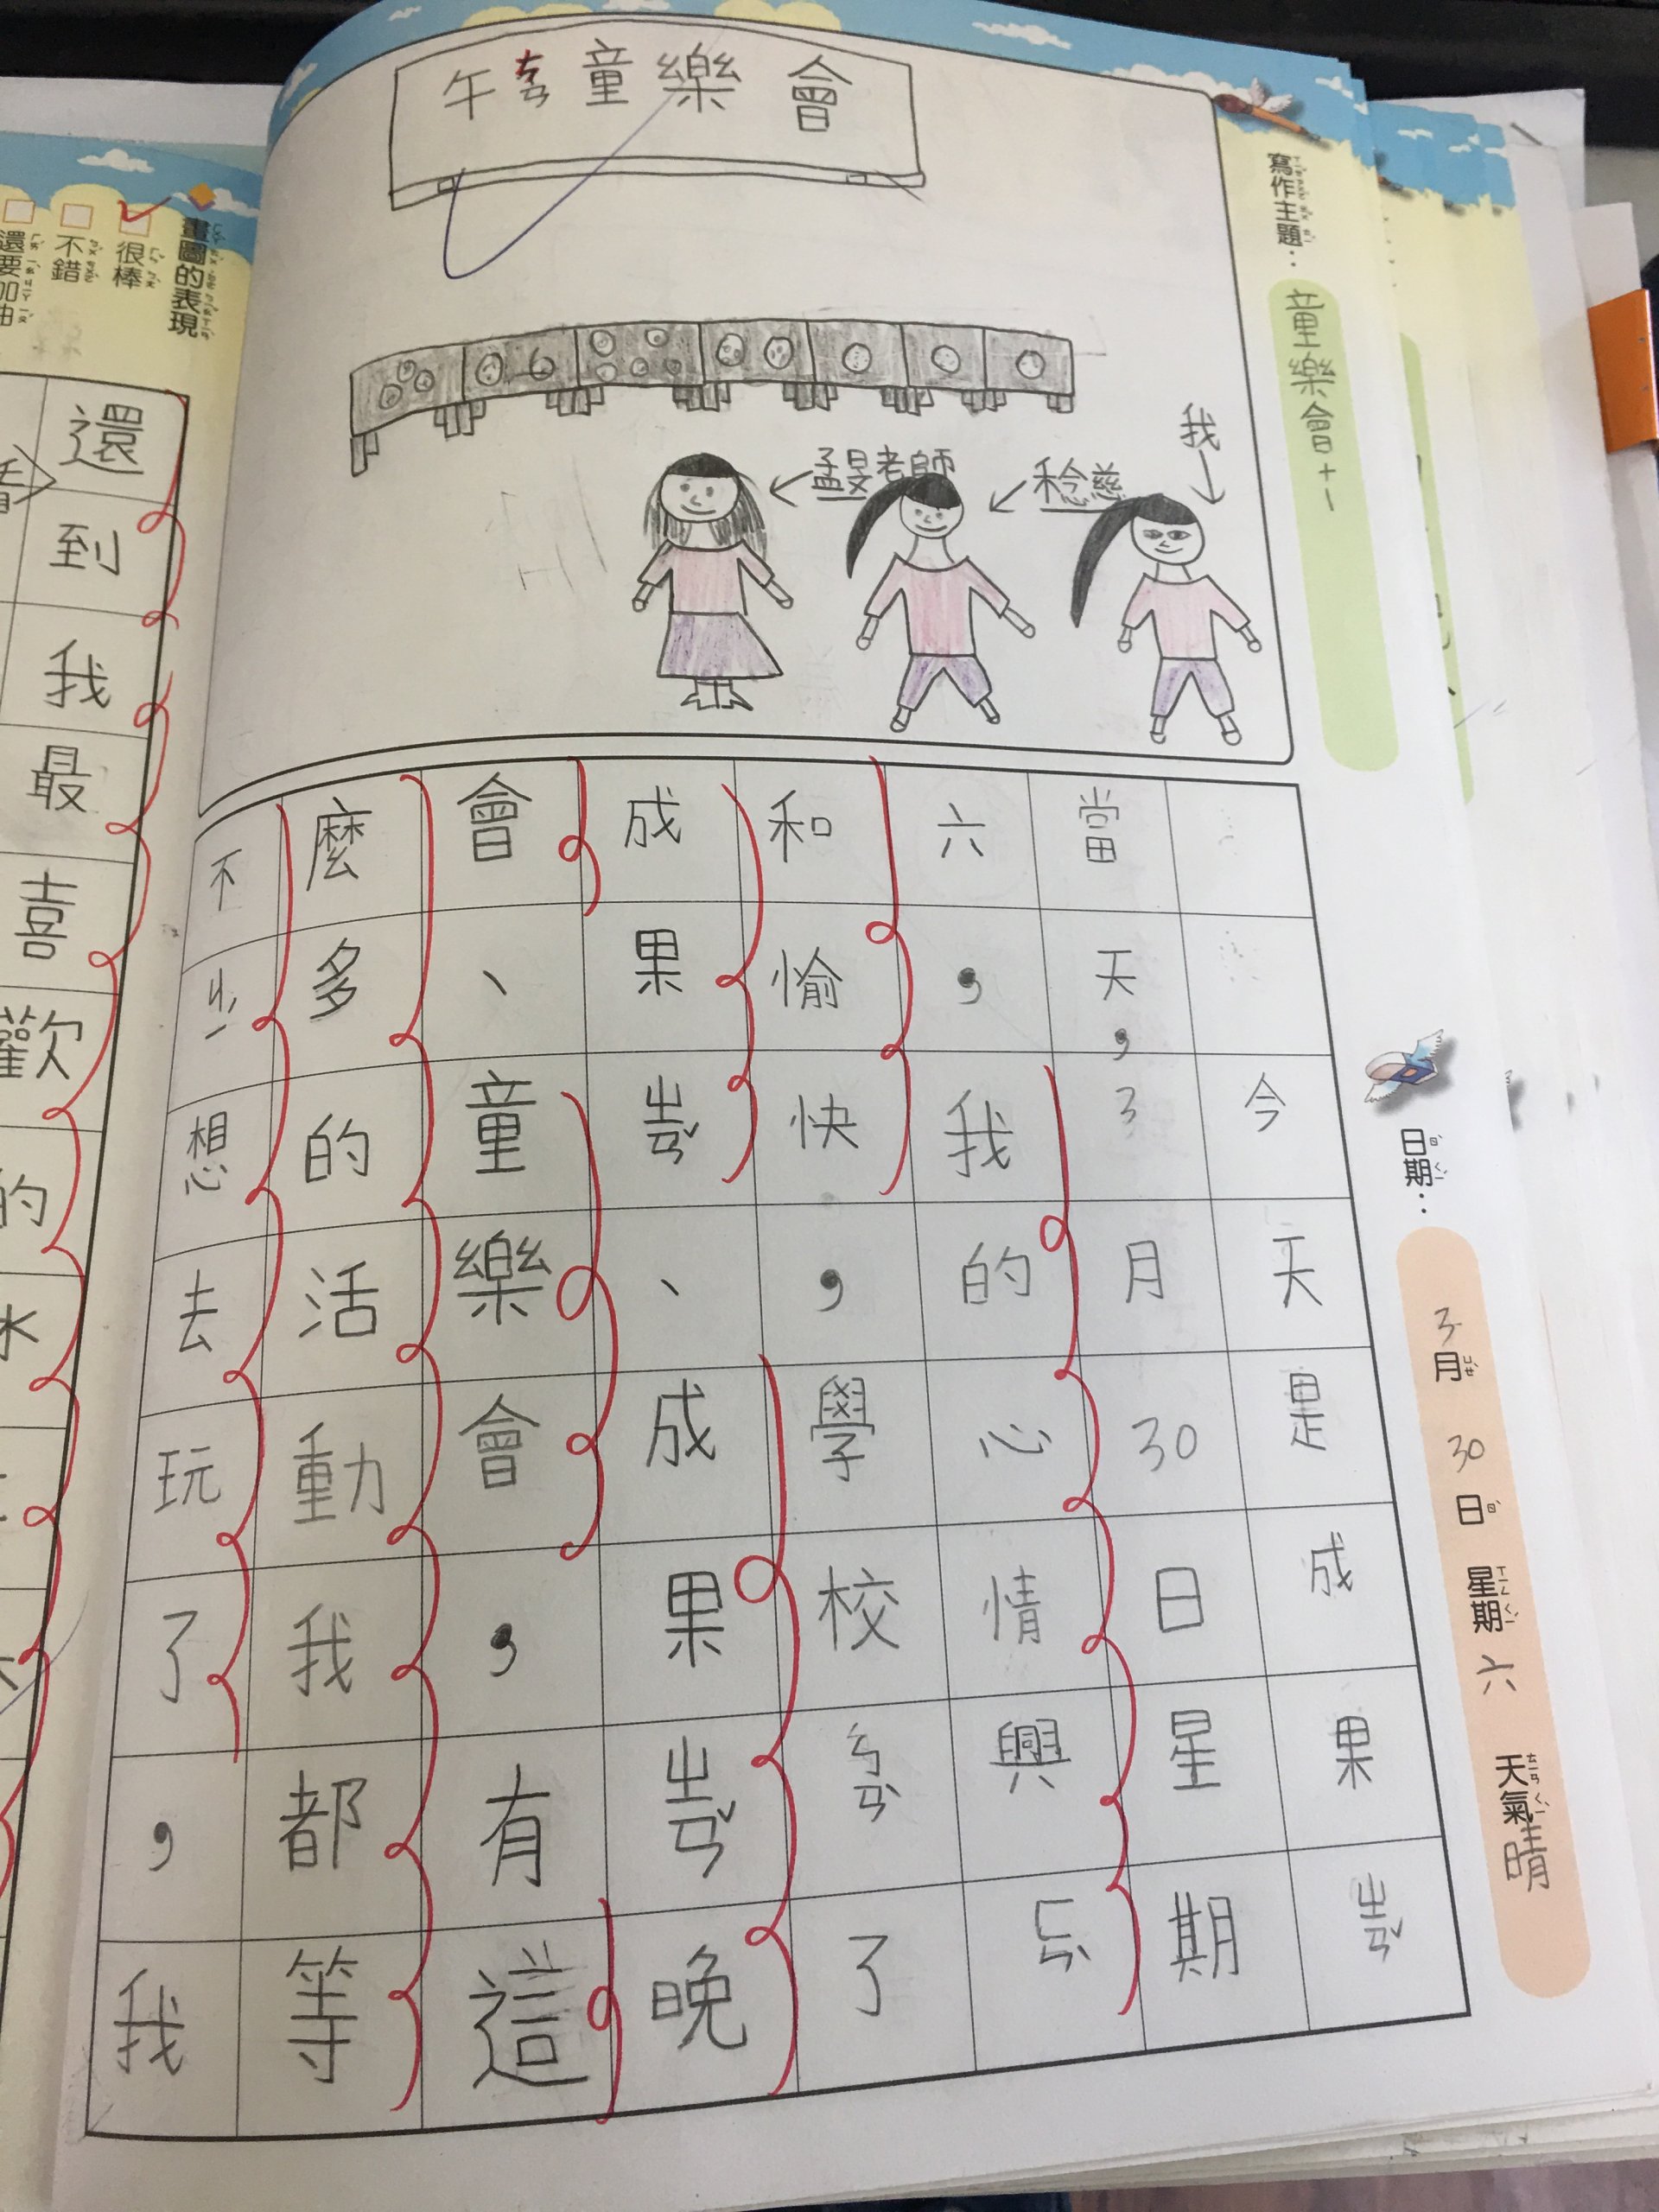 午童樂會
寫作主題：童樂會+1
我
稔慈
孟旻老師
日期：3月30日 星期六 天氣晴
今天是成果ㄓㄢˇ
當天，3月30日星期
六，我的心情興ㄈㄣˋ
和愉快，學校ㄅㄢˋ了
成果ㄓㄢˇ、成果ㄓㄢˇ晚
會、童樂會，有這
麼多的活動我都等
不少想去玩了，我
畫圖的表現
很棒
不錯
還要加油
還到我最喜歡的